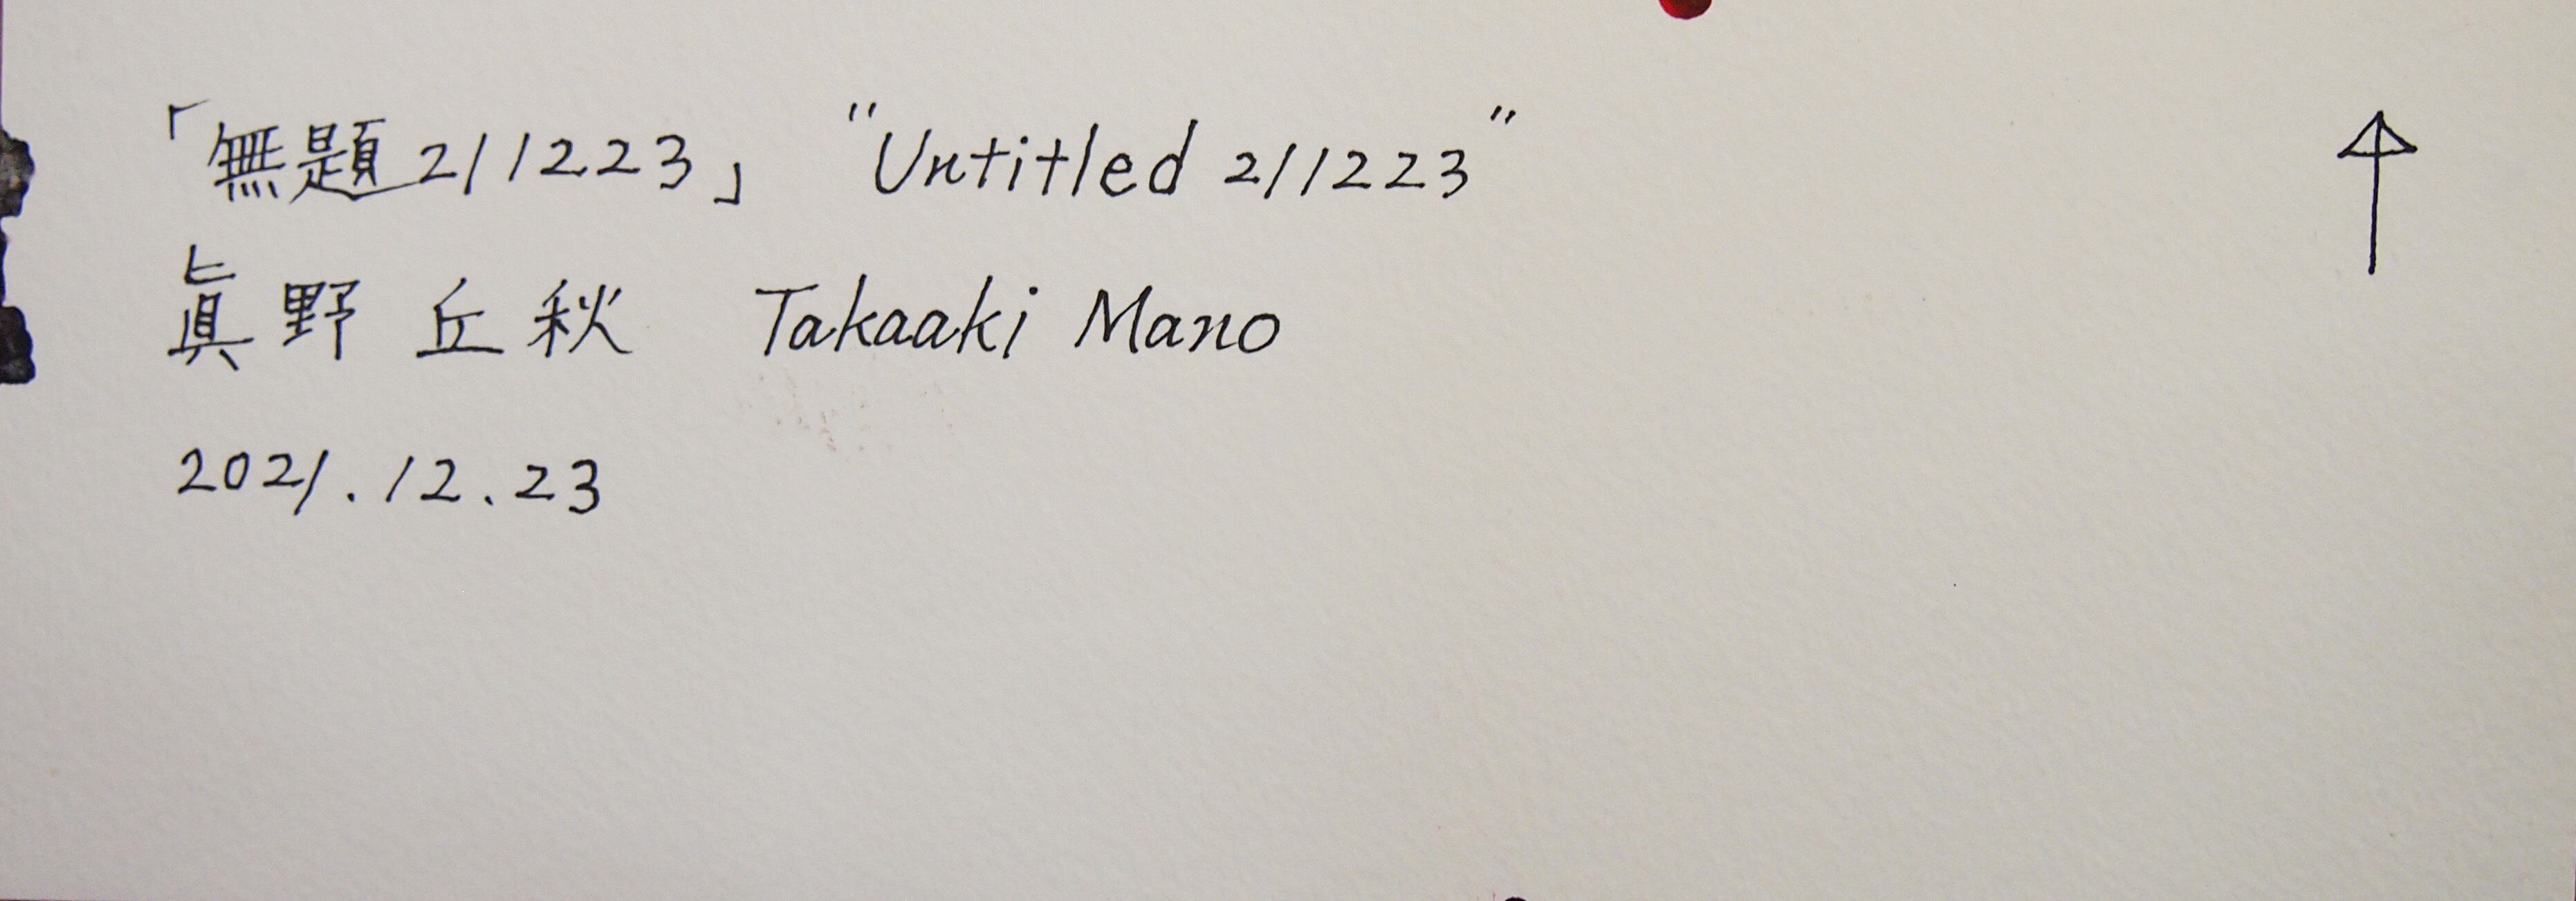 「無題211223」 "Untitled 211223"
眞野 丘秋 Takaaki Mano
2021.12.23